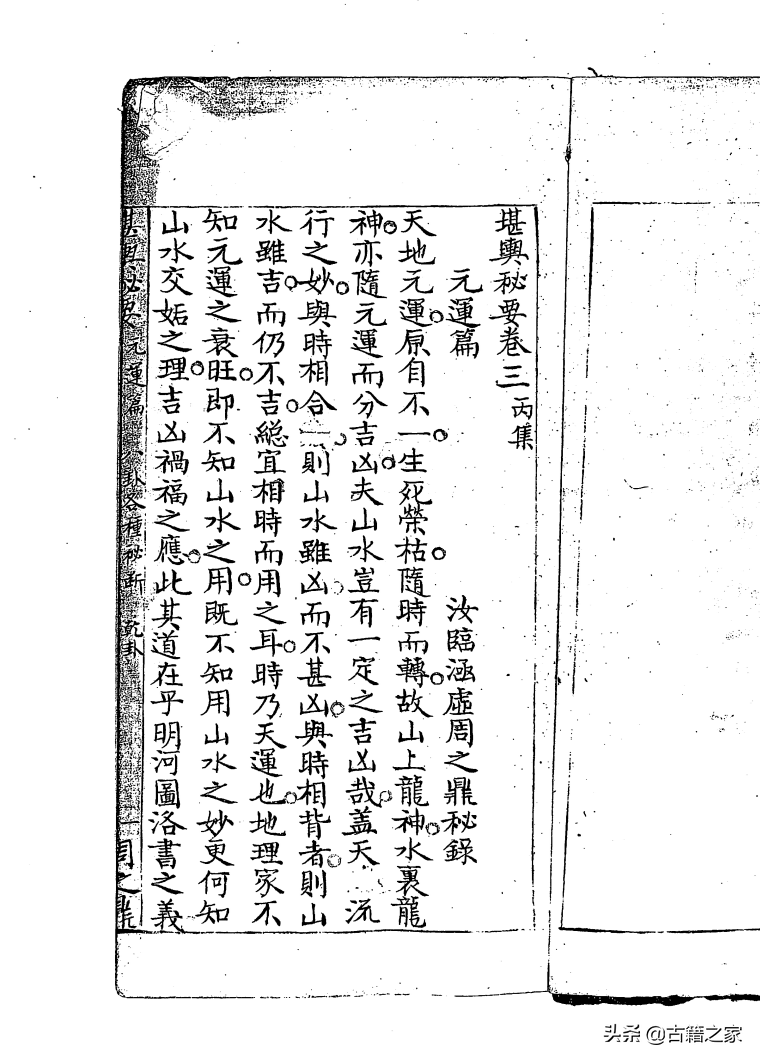 堪輿秘要卷三 丙集
元運篇
汝臨涵虛周之鼎秘錄
天地元運。原自不一。生死榮枯。隨時而轉。故山上龍神。水裏龍
神。亦隨元運而分吉凶。夫山水豈有一定之吉凶哉。蓋天 流
行之妙。與時相合 則山水雖凶。而不甚凶。與時相背者。則山
水雖吉。而仍不吉。總宜相時而用之耳。時乃天運也。地理家不
知元運之衰旺。即不知山水之用。既不知用山水之妙。更何知
山水交姤之理。吉凶禍福之應。此其道在乎明河圖洛書之義
堪輿秘要 元運篇 卦各種秘斷 乾卦 一 周之鼎
头条 @古籍之家